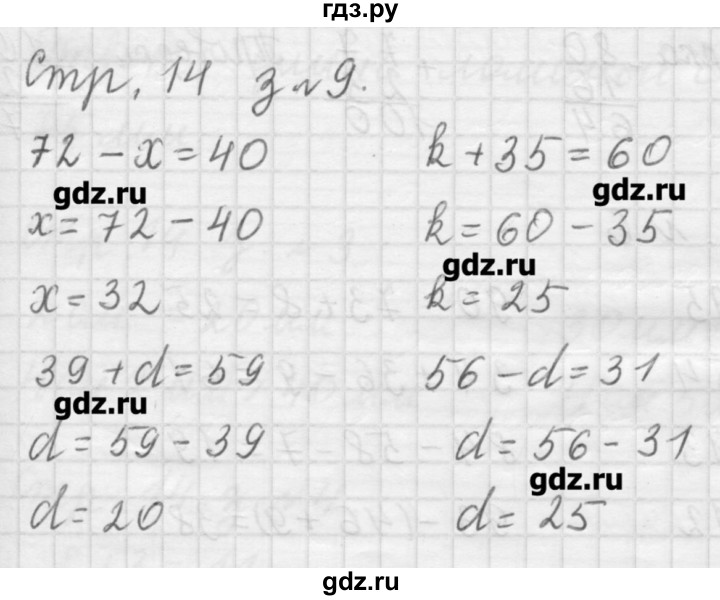 гдз.ру
Стр. 14 з №9.
72 - x = 40
k + 35 = 60
gdz.ru
gdz.ru
x = 72 - 40
k = 60 - 35
gdz.ru
x = 32
k = 25
39 + d = 59
56 - d = 31
gdz.ru
d = 59 - 39
d = 56 - 31
gdz.ru
d = 20
d = 25
gdz.ru